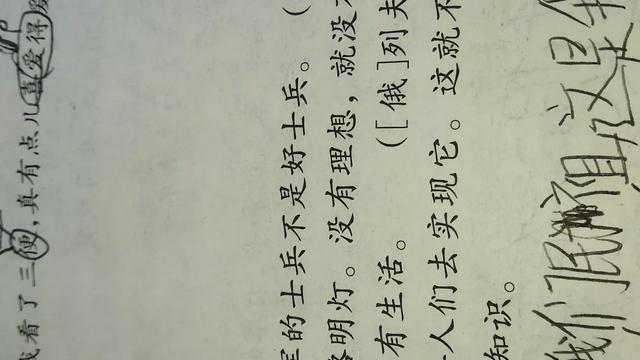 看了三便，真有点儿喜爱得
的士兵不是好士兵。（
明灯。没有理想，就没
有生活。（[俄]列夫
人们去实现它。这就不
知识。
我们民 这是